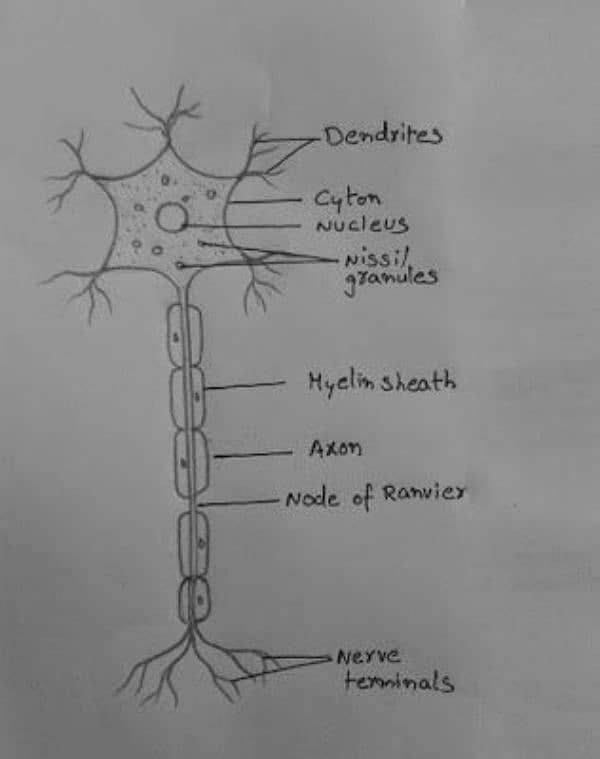 Dendrites
Cyton
Nucleus
Nissil
granules
Myelin sheath
Axon
Node of Ranvier
Nerve
terminals